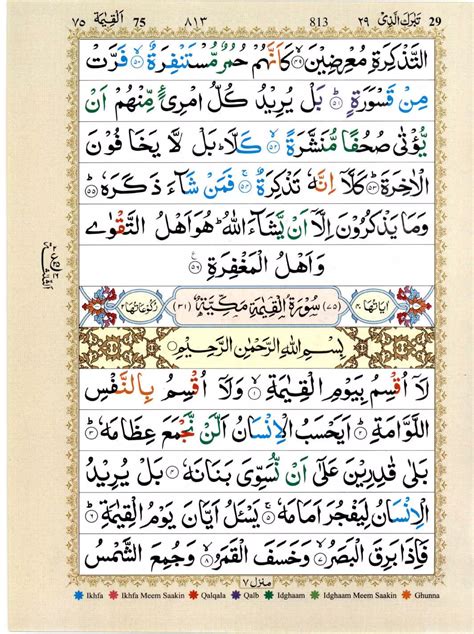 ٢٩ تبٰرك الذى ٢٩ 813 ٨١٣ 75 القيمة ٧٥
التَّذْكِرَةِ مُعْرِضِيْنَ ۙ‏﴿۴۹﴾ كَاَنَّهُمْ حُمُرٌ مُّسْتَنْفِرَةٌ ۙ‏﴿۵۰﴾ فَرَّتْ
مِنْ قَسْوَرَةٍ ؕ‏﴿۵۱﴾ بَلْ يُرِيْدُ كُلُّ امْرِىٴٍ مِّنْهُمْ اَنْ
يُّؤْتٰى صُحُفًا مُّنَشَّرَةً ۙ‏﴿۵۲﴾ كَلَّا ؕ بَلْ لَّا يَخَافُوْنَ
الْاٰخِرَةَ ؕ‏﴿۵۳﴾ كَلَّاۤ اِنَّهٗ تَذْكِرَةٌ ۚ‏﴿۵۴﴾ فَمَنْ شَآءَ ذَكَرَهٗ ؕ‏﴿۵۵﴾
وَمَا يَذْكُرُوْنَ اِلَّاۤ اَنْ يَّشَآءَ اللّٰهُ ؕ هُوَ اَهْلُ التَّقْوٰى
وَاَهْلُ الْمَغْفِرَةِ ‏﴿۵۶﴾
اٰيَاتُهَا ٤٠ (٧٥) سُوْرَةُ الْقِيٰمَةِ مَكِّيَّةٌ (٣١) رُكُوْعَاتُهَا ٢
بِسْمِ اللّٰهِ الرَّحْمٰنِ الرَّحِيْمِ
لَاۤ اُقْسِمُ بِيَوْمِ الْقِيٰمَةِ ۙ‏﴿۱﴾ وَلَاۤ اُقْسِمُ بِالنَّفْسِ
اللَّوَّامَةِ ؕ‏﴿۲﴾ اَيَحْسَبُ الْاِنْسَانُ اَلَّنْ نَّجْمَعَ عِظَامَهٗ ؕ‏﴿۳﴾
بَلٰى قٰدِرِيْنَ عَلٰٓى اَنْ نُّسَوِّىَ بَنَانَهٗ ‏﴿۴﴾ بَلْ يُرِيْدُ
الْاِنْسَانُ لِيَفْجُرَ اَمَامَهٗ ۚ‏﴿۵﴾ يَسْـَٔلُ اَيَّانَ يَوْمُ الْقِيٰمَةِ ؕ‏﴿۶﴾
فَاِذَا بَرِقَ الْبَصَرُ ۙ‏﴿۷﴾ وَخَسَفَ الْقَمَرُ ۙ‏﴿۸﴾ وَجُمِعَ الشَّمْسُ
منزل ٧
Ikhfa Ikhfa Meem Saakin Qalqala Qalb Idghaam Idghaam Meem Saakin Ghunna